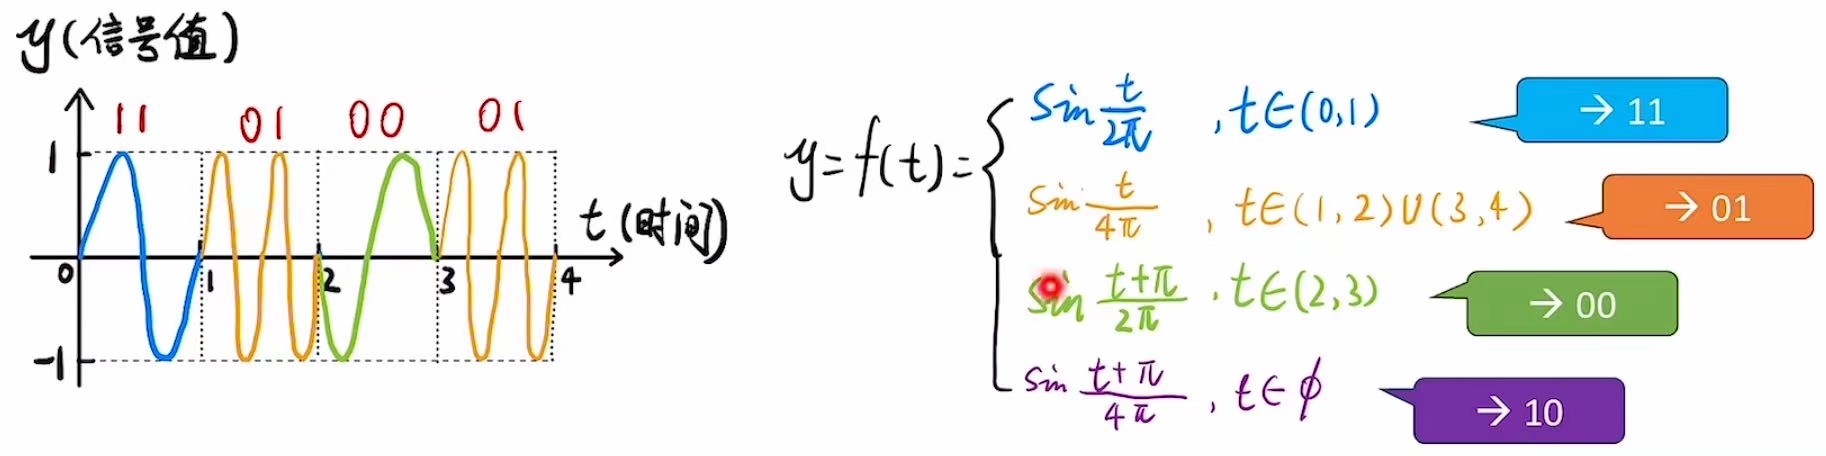 y(信号值)
11 01 00 01
1
0 1 2 3 4
-1
t(时间)
y=f(t)=
sin t/2π , t∈(0,1)
→ 11
sin t/4π , t∈(1,2)∪(3,4)
→ 01
sin t+π/2π , t∈(2,3)
→ 00
sin t+π/4π , t∈ϕ
→ 10